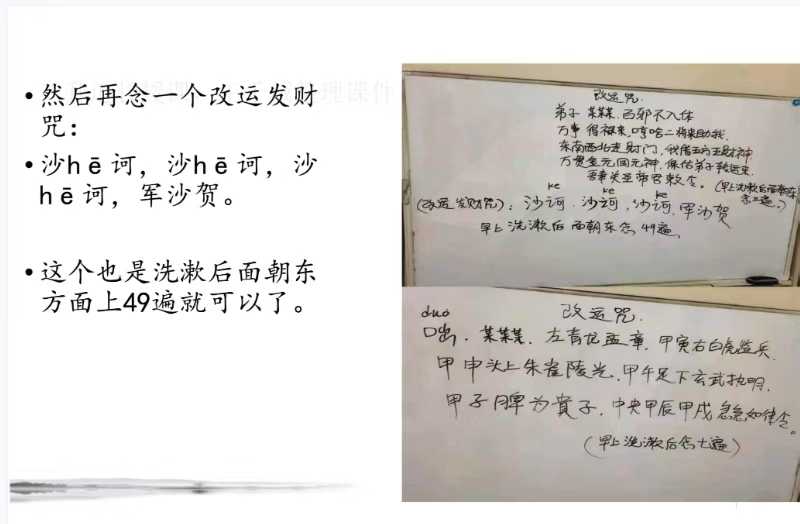 • 然后再念一个改运发财
咒：
• 沙hē诃，沙hē诃，沙
hē诃，军沙贺。
• 这个也是洗漱后面朝东
方面上49遍就可以了。
改运咒.
弟子 某某某. 百邪不入体
万事得福来. 哼哈二将来助我.
东南西北连财门，代唐五方五财神
万贯金元回元神，保佑弟子转运来.
吾奉关圣帝君敕令。(早上洗漱后面朝东
念三遍.)
ke ke ke
(改运发财咒)：沙诃. 沙诃，沙诃，军沙贺
早上洗漱后面朝东念49遍.
改运咒.
duo
咄. 某某某. 左青龙孟章. 甲寅右白虎监兵.
甲申头上朱雀陵光. 甲午足下玄武执明.
甲子脾为贵子. 中央甲辰甲戌急急如律令。
(早上洗漱后念七遍)